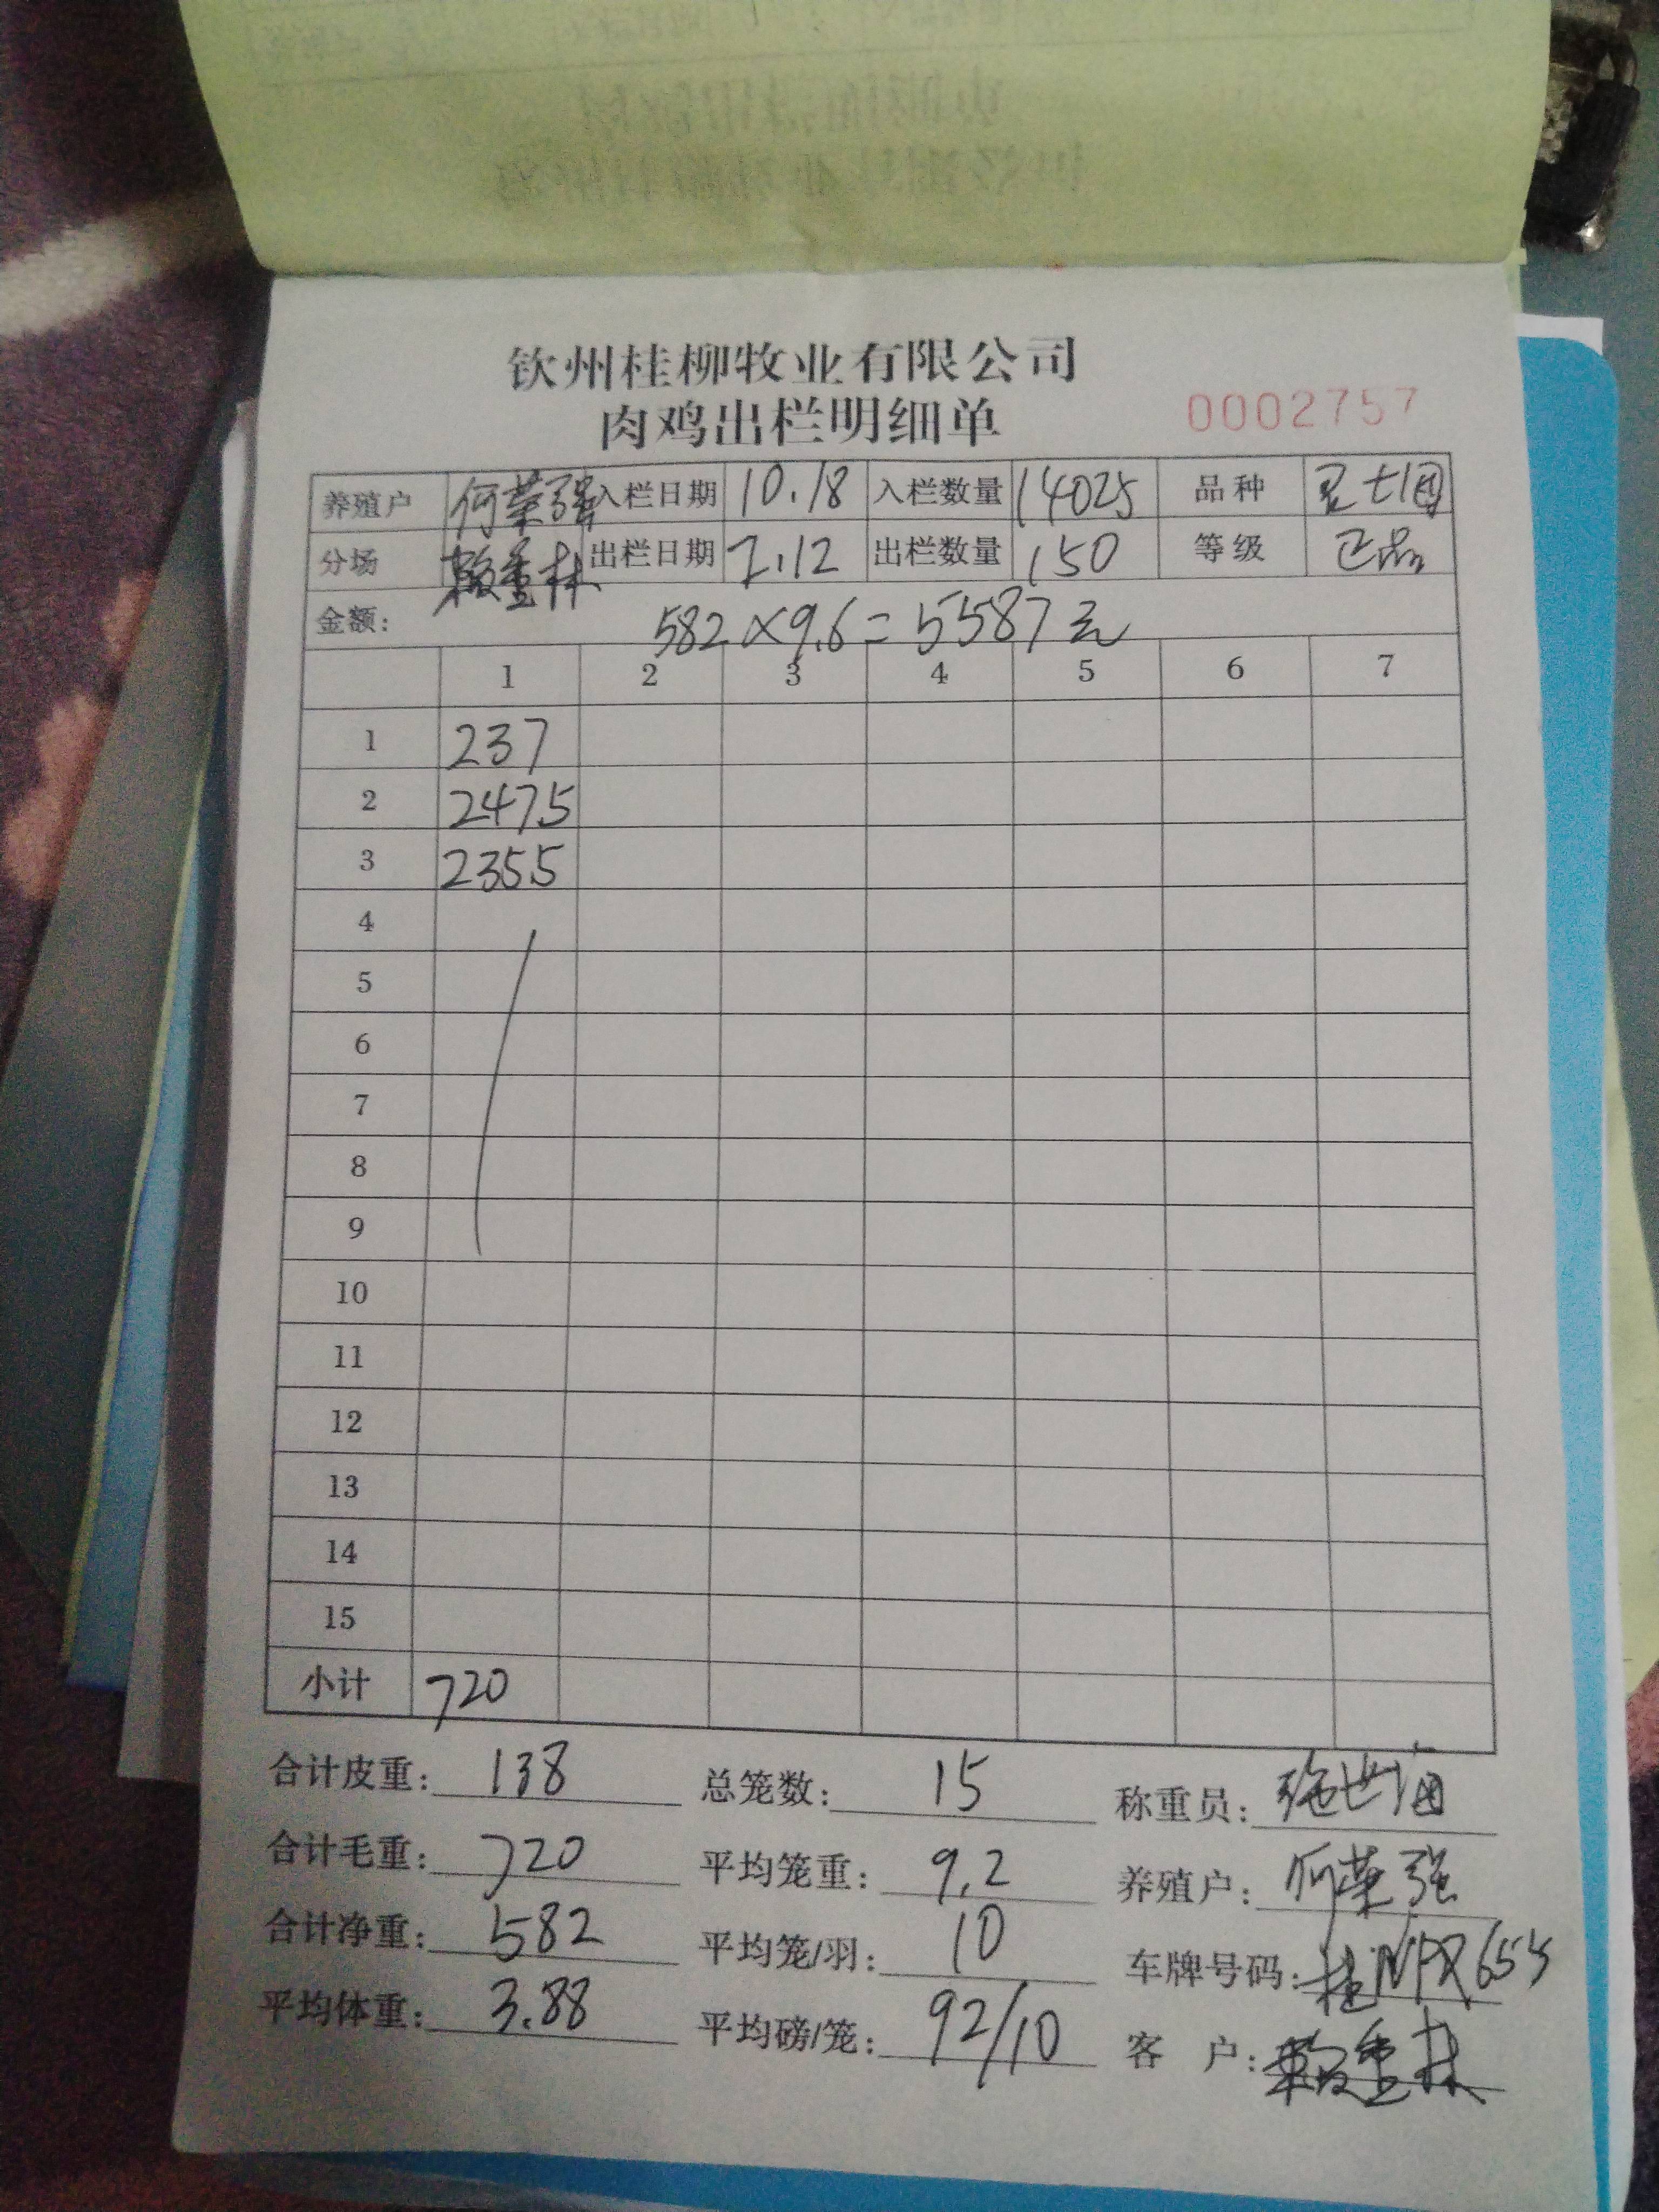 钦州桂柳牧业有限公司
肉鸡出栏明细单 0002757
养殖户 何荣强 入栏日期 10.18 入栏数量 14025 品种
分场 赖重林 出栏日期 2.12 出栏数量 150 等级 正品
金额: 582×9.6=5587元
1 2 3 4 5 6 7
1 237
2 247.5
3 235.5
4
5
6
7
8
9
10
11
12
13
14
15
小计 720
合计皮重: 138 总笼数: 15 称重员:
合计毛重: 720 平均笼重: 9.2 养殖户: 何荣强
合计净重: 582 平均笼/羽: 10 车牌号码:
平均体重: 3.88 平均磅/笼: 92/10 客 户: 赖重林